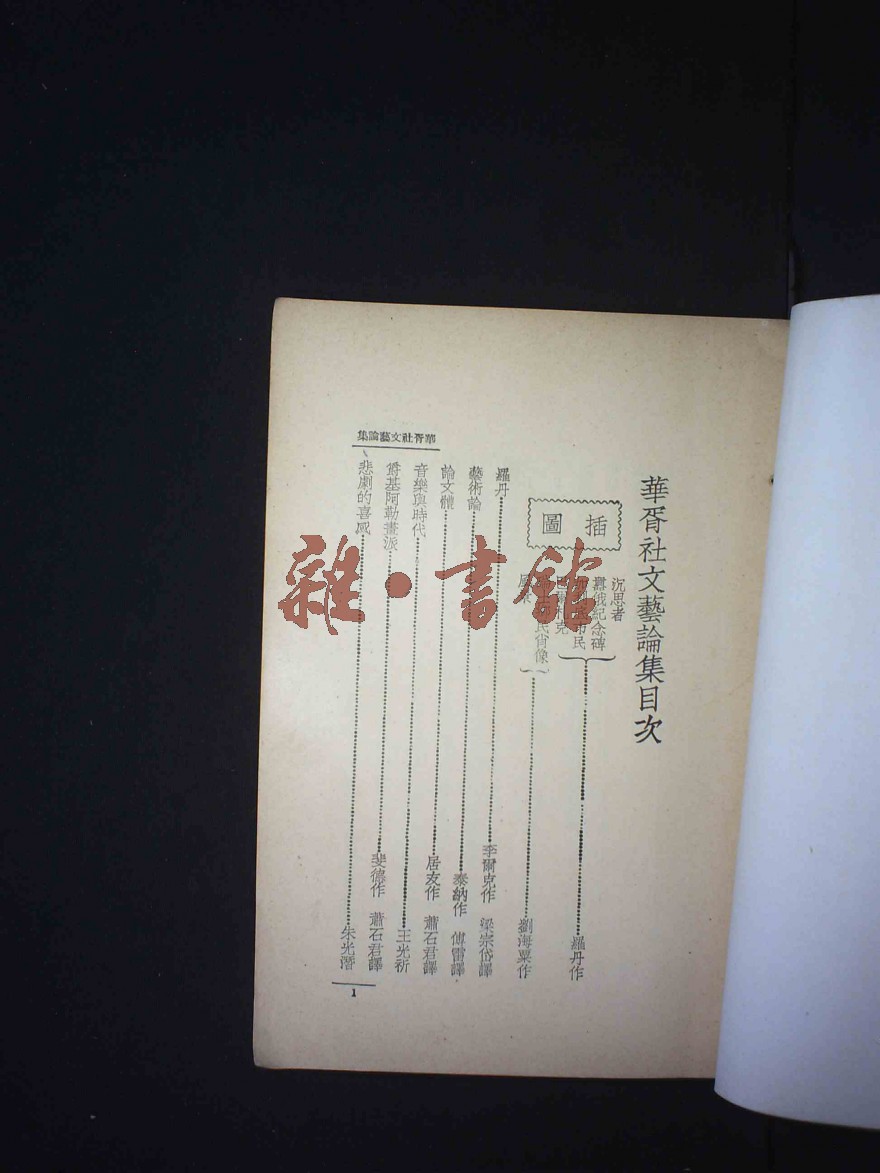 華胥社文藝論集目次
插圖
沉思者
囂俄紀念碑
市民
克
民肖像
羅丹作
劉海粟作
羅丹 李爾克作 梁宗岱譯
藝術論 泰納作 傅雷譯
論文體 居友作 蕭石君譯
音樂與時代 王光祈
爵基阿勒畫派 斐德作 蕭石君譯
悲劇的喜感 朱光潛
華胥社文藝論集
1
雜·書館